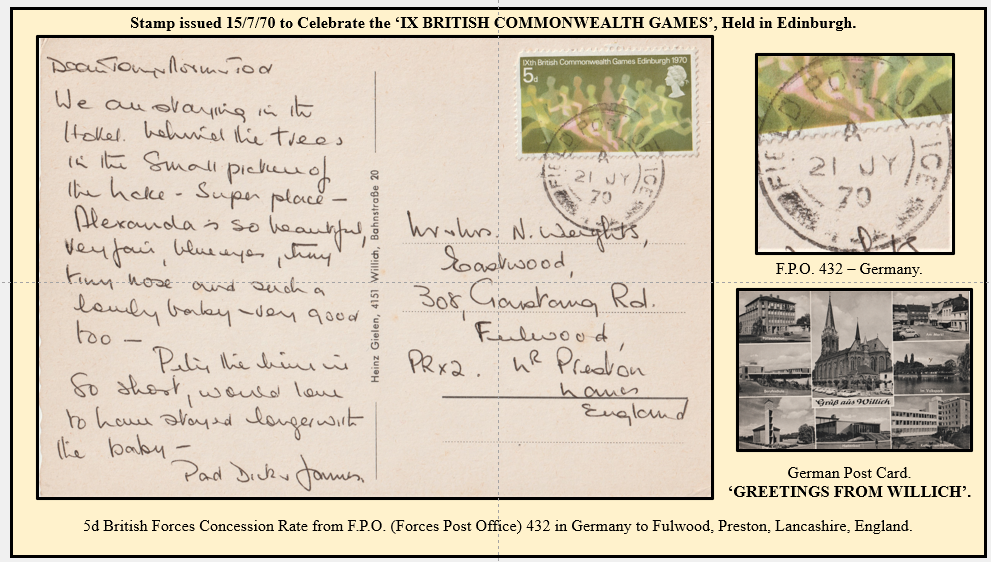 Stamp issued 15/7/70 to Celebrate the ‘IX BRITISH COMMONWEALTH GAMES’, Held in Edinburgh.
We are staying in the
Hotel. behind the trees
in the Small picture of
the Lake - Super place -
Alexanda is so beautiful,
very fair, blue eyes, tiny
tiny nose and such a
lovely baby - very good
too -
Pity the time is
So short, would love
to have stayed longer with
the baby -
Heinz Gielen, 4151 Willich, Bahnstraße 20
IXth British Commonwealth Games Edinburgh 1970
5d
FIELD POST OFFICE
A
21 JY
70
Mr & Mrs. N. Weights,
Eastwood,
308, Garstang Rd.
Fulwood,
PRx2. Nr Preston
Lancs
England
FIELD POST OFFICE
A
21 JY
70
F.P.O. 432 – Germany.
Gruß aus Willich
German Post Card.
‘GREETINGS FROM WILLICH’.
5d British Forces Concession Rate from F.P.O. (Forces Post Office) 432 in Germany to Fulwood, Preston, Lancashire, England.